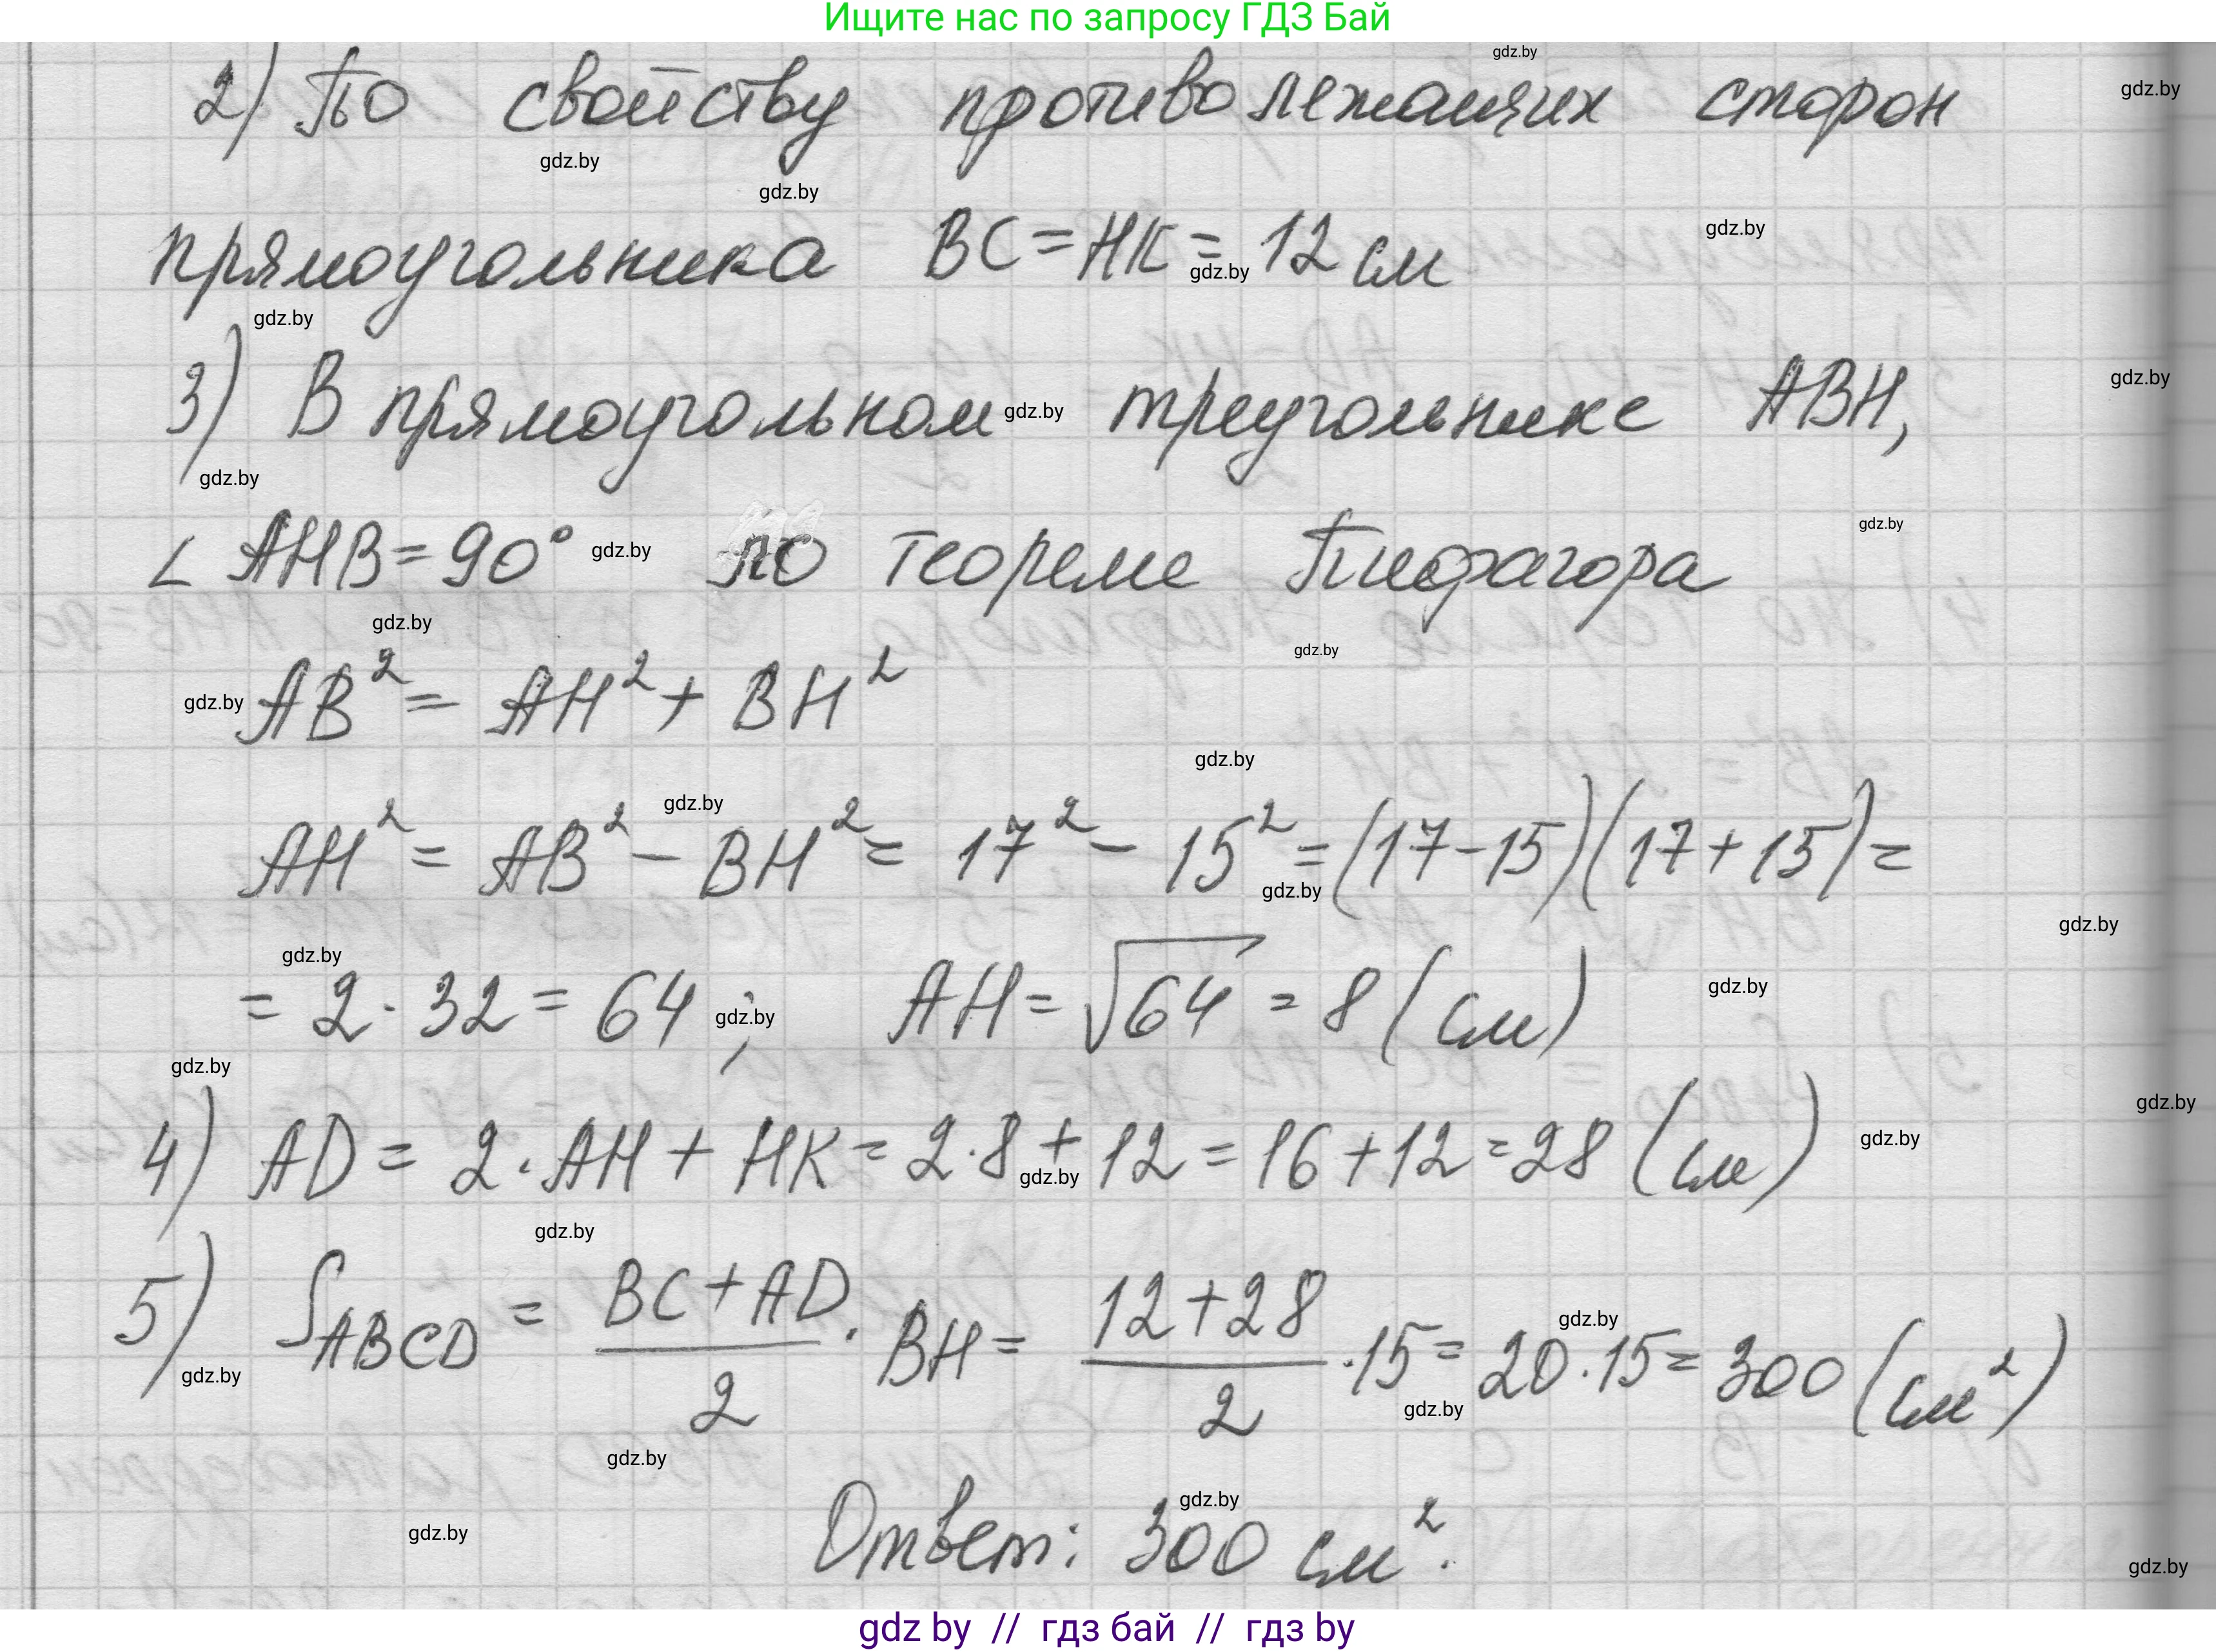 Ищите нас по запросу ГДЗ Бай
gdz.by
2) По свойству противолежащих сторон gdz.by
gdz.by
gdz.by
прямоугольника BC = HK = 12 см gdz.by
gdz.by
gdz.by
3) В прямоугольном gdz.by треугольнике ABH, gdz.by
gdz.by
∠ AHB = 90° gdz.by по теореме Пифагора gdz.by
gdz.by
gdz.by
gdz.by AB² = AH² + BH²
gdz.by
gdz.by
AH² = AB² − BH² = 17² − 15² = (17−15)(17+15) =
gdz.by
gdz.by
gdz.by
= 2 · 32 = 64 ; AH = √64 = 8 (см) gdz.by
gdz.by
gdz.by
gdz.by
4) AD = 2 · AH + HK = 2·8 + 12 = 16 + 12 = 28 (см) gdz.by
gdz.by
gdz.by
5) S ABCD = (BC + AD)/2 · BH = (12+28)/2 · 15 = 20 · 15 = 300 (см²)
gdz.by
gdz.by
gdz.by
gdz.by
gdz.by
Ответ: 300 см².
gdz.by
gdz.by
gdz by // гдз бай // гдз by